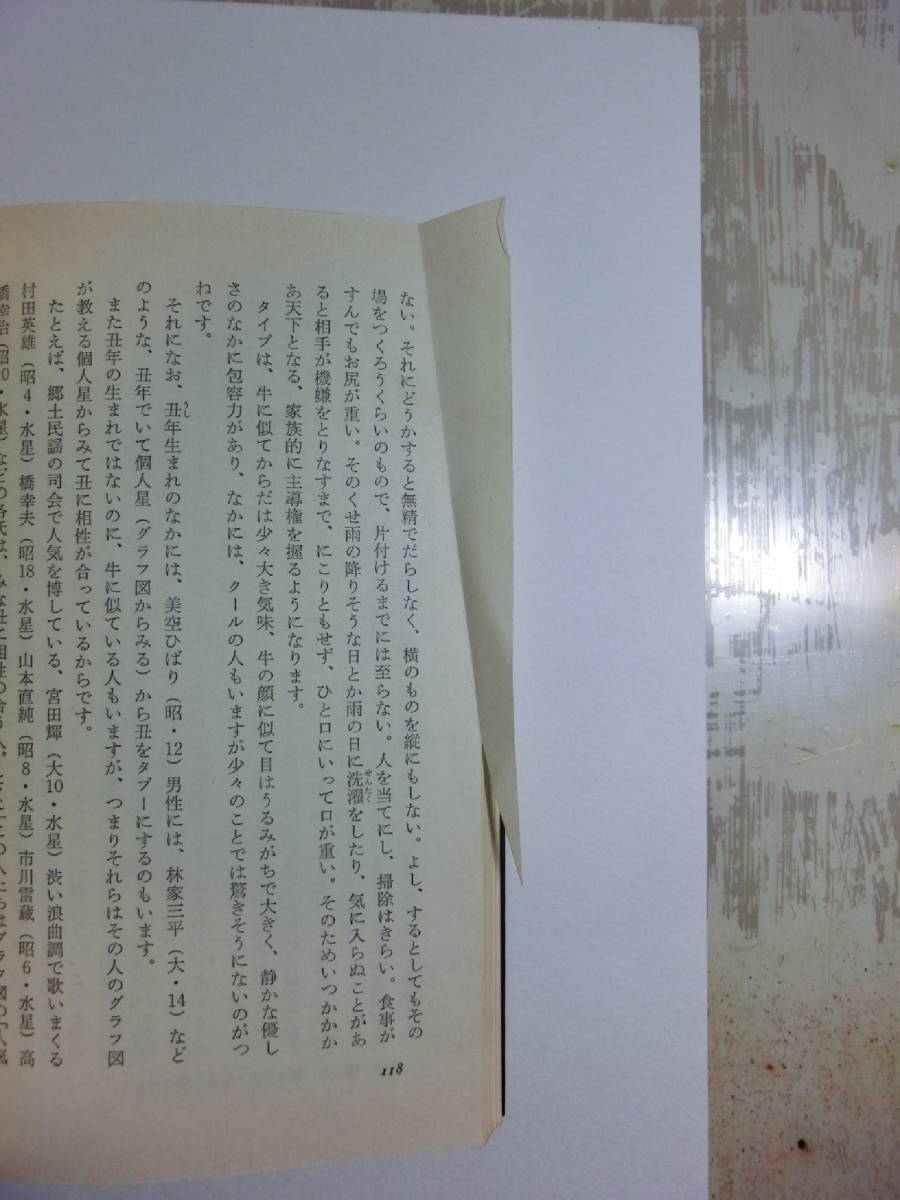 ない。それにどうかすると無精でだらしなく、横のものを縦にもしない。よし、するとしてもその
場をつくろうくらいのもので、片付けるまでには至らない。人を当てにし、掃除はきらい。食事が
すんでもお尻が重い。そのくせ雨の降りそうな日とか雨の日に洗濯をしたり、気に入らぬことがあ
せんたく
ると相手が機嫌をとりなすまで、にこりともせず、ひと口にいって口が重い。そのためいつかかか
あ天下となる、家族的に主導権を握るようになります。
タイプは、牛に似てからだは少々大き気味、牛の顔に似て目はうるみがちで大きく、静かな優し
さのなかに包容力があり、なかには、タールの人もいますが少々のことでは驚きそうにないのがつ
ねです。
それになお、丑年生まれのなかには、美空ひばり（昭・12）男性には、林家三平（大・14）など
うし
のような、丑年でいて個人星（グラフ図からみる）から丑をタブーにするのもいます。
また丑年の生まれではないのに、牛に似ている人もいますが、つまりそれらはその人のグラフ図
が教える個人星からみて丑に相性が合っているからです。
たとえば、郷土民謡の司会で人気を博している、宮田輝（大10・水星）渋い浪曲調で歌いまくる
村田英雄（昭4・水星）橋幸夫（昭18・水星）山本直純（昭8・水星）市川雷蔵（昭6・水星）高
118